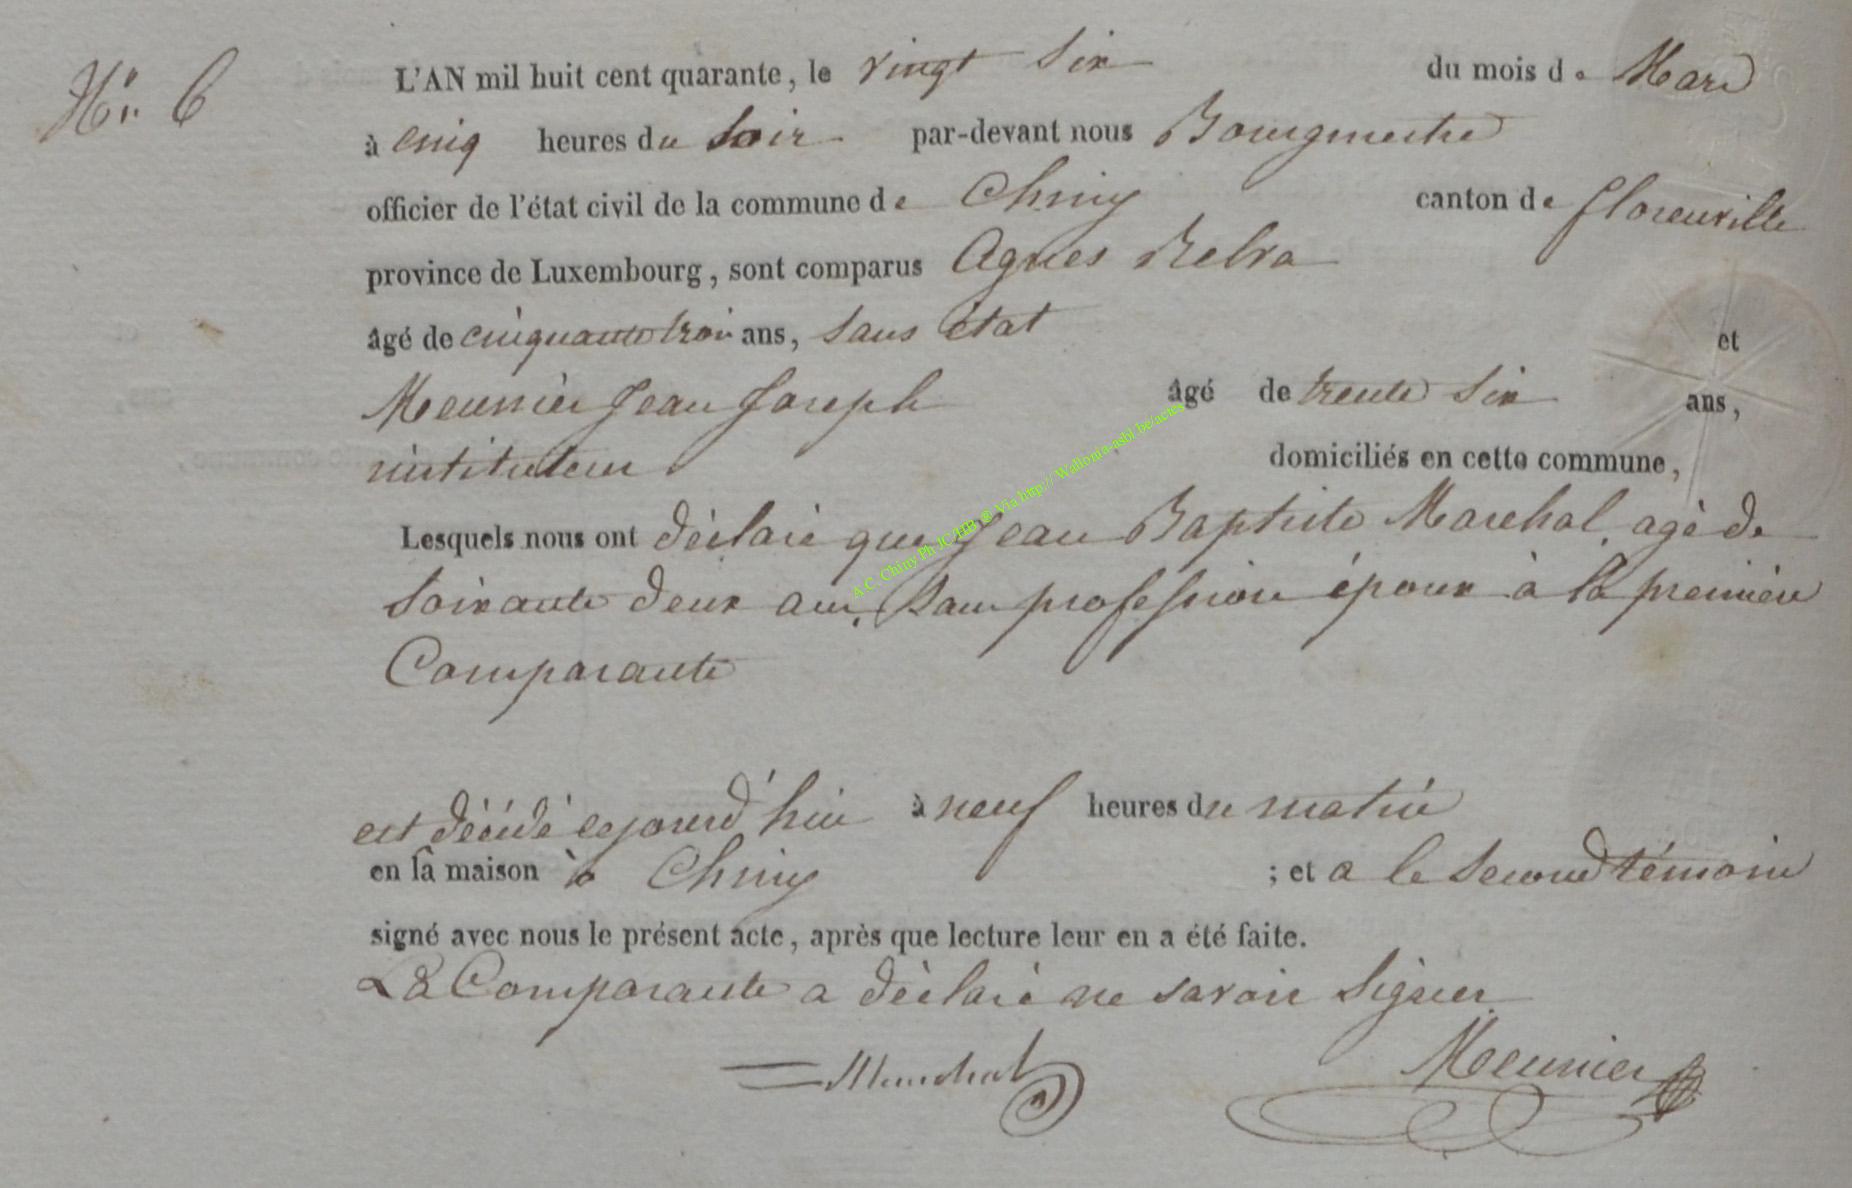 Nº 6
L'AN mil huit cent quarante, le vingt six du mois de Mars
à cinq heures du soir par-devant nous Bourgmestre
officier de l'état civil de la commune de Chiny canton de florenville
province de Luxembourg, sont comparus Agnes Relva
âgé de cinquante trois ans, sans état et
Meunier Jean Joseph âgé de trente six ans,
instituteur domiciliés en cette commune,
Lesquels nous ont déclaré que Jean Baptiste Marchal, agé de
soixante deux ans, sans profession époux à la première
Comparante
est décédé cejourd'hui à neuf heures du matin
en sa maison à Chiny ; et a le second témoin
signé avec nous le présent acte, après que lecture leur en a été faite.
La Comparante a déclaré ne savoir signer
Marchal Meunier
A.C. Chiny Ph JC/HB ® Via http:// Wallonia-asbl.be/actes